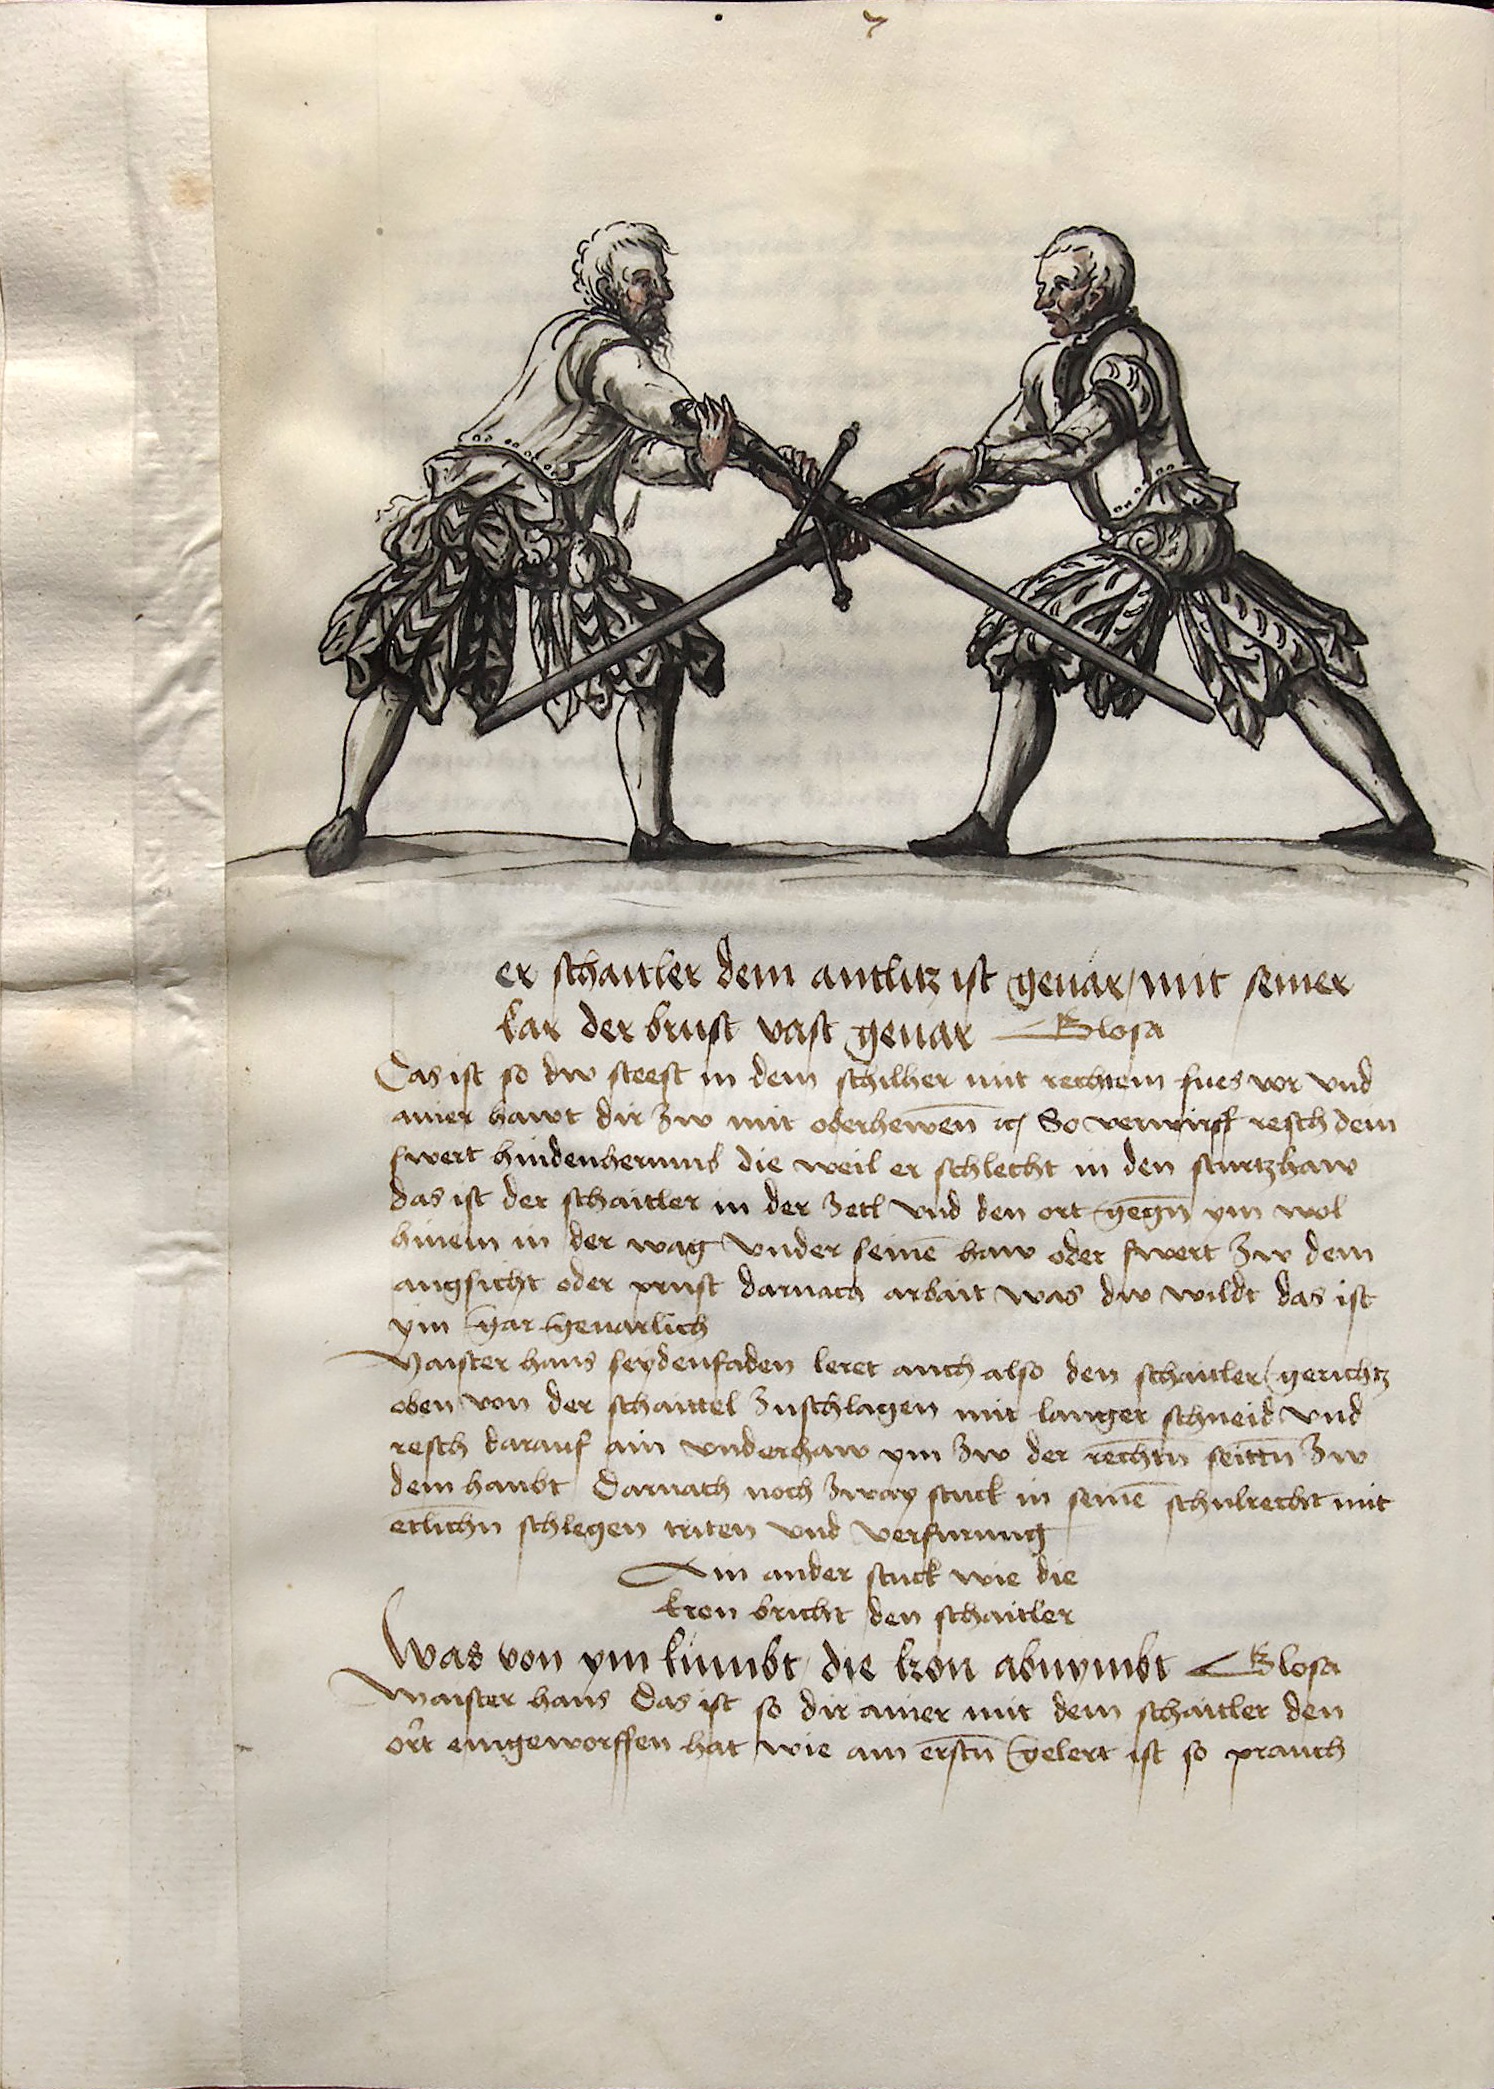 7
er schaitler dem antlitz ist gevar / mit seiner
kar der brust vast gevar Glosa
Das ist so dw steest in dem schilher mit rechtem fues vor vnd
ainer hawt dir zw mit oberhewen̅ rc̃ So verwirff resch dein
swert hindenherumb die weil er schlecht in den sturtzhaw
das ist der schaitler in der zetl vnd den ort gegn̅ ym wol
hinein in der wag vnder seine̅ haw oder swert zw dem
angsicht oder prust darnach arbait was dw wildt das ist
ym gar gevarlich
Maister hans seydenfaden leret auch also den schaitler / gerichtz
oben von der schaittel zuschlagen mit langer schneid vnd
resch darauf ain vnderhaw ym zw der rechtn̅ seittn̅ zw
dem haubt Darnach noch zway stuck in seine̅ schulrecht mit
etlichn̅ schlegen triten vnd verfurung
Ain ander stuck wie die
kron bricht den schaitler
Was von ym kumbt / die kron abnymbt Glosa
Maister hans Das ist so dir ainer mit dem schaitler den
ort eingeworffen hat wie am erstn̅ gelert ist so prauch